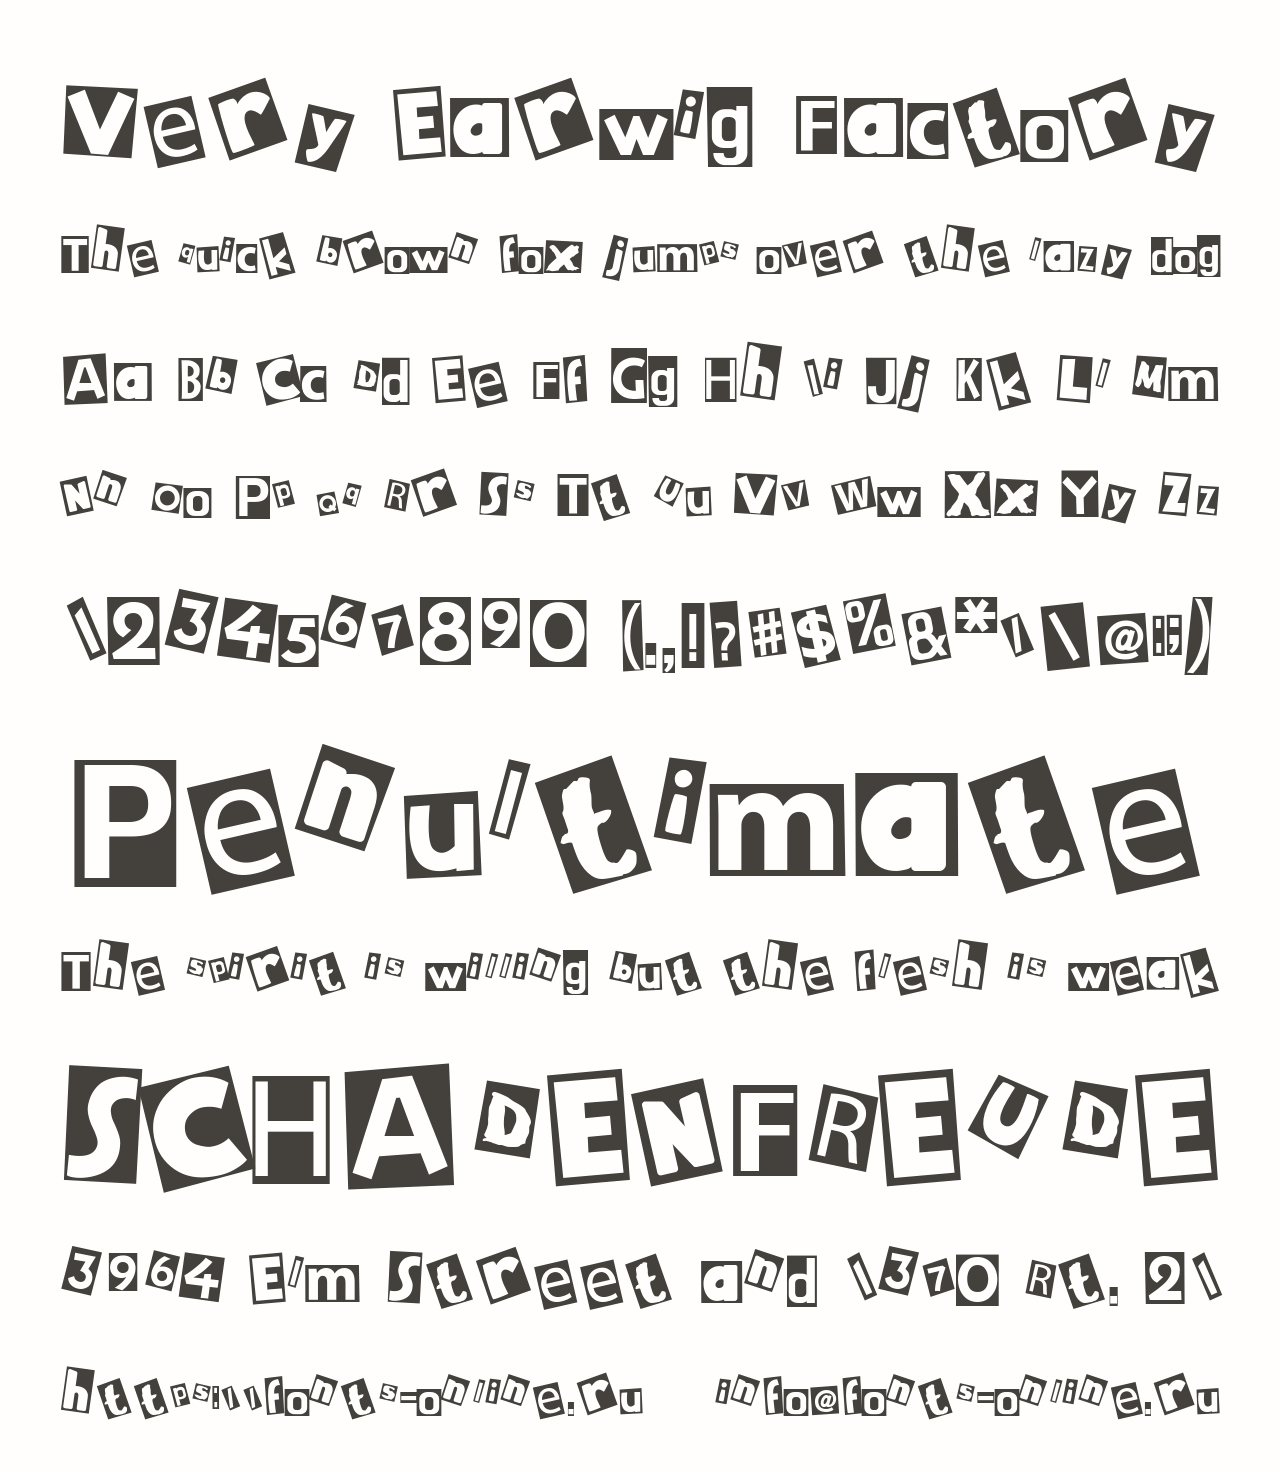 Very Earwig Factory
The quick brown fox jumps over the lazy dog
Aa Bb Cc Dd Ee Ff Gg Hh Ii Jj Kk Ll Mm
Nn Oo Pp Qq Rr Ss Tt Uu Vv Ww Xx Yy Zz
1234567890 (.,!?#$%&*/\@:;)
Penultimate
The spirit is willing but the flesh is weak
SCHADENFREUDE
3964 Elm Street and 1370 Rt. 21
https://fonts-online.ru info@fonts-online.ru